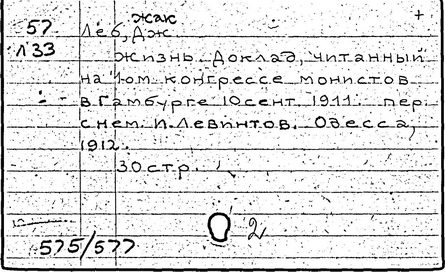 жак
57 Лёб, Дж +
Л33 Жизнь. Доклад, читанный
на 1-ом конгрессе монистов
в Гамбурге 10 сент. 1911. пер.
с нем. И. Левинтов. Одесса,
1912.
30 стр.
2
575/577